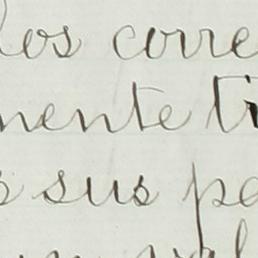 los corre
mente ti
s sus pe